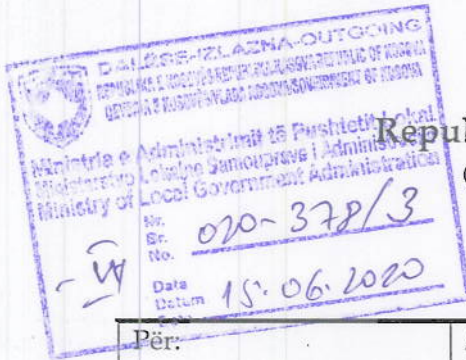 DALËSE-IZLAZNA-OUTGOING
REPUBLIKA E KOSOVËS-REPUBLIKA KOSOVA-REPUBLIC OF KOSOVA
QEVERIA E KOSOVËS-VLADA KOSOVA-GOVERNMENT OF KOSOVA
Ministria e Administrimit të Pushtetit Lokal
Ministarstvo Lokalne Samouprave i
Ministry of Local Government Administration
Repu
Nr.
Br.
No.
020-378/3
-VI
Data
Datum
15.06.2020
Për: